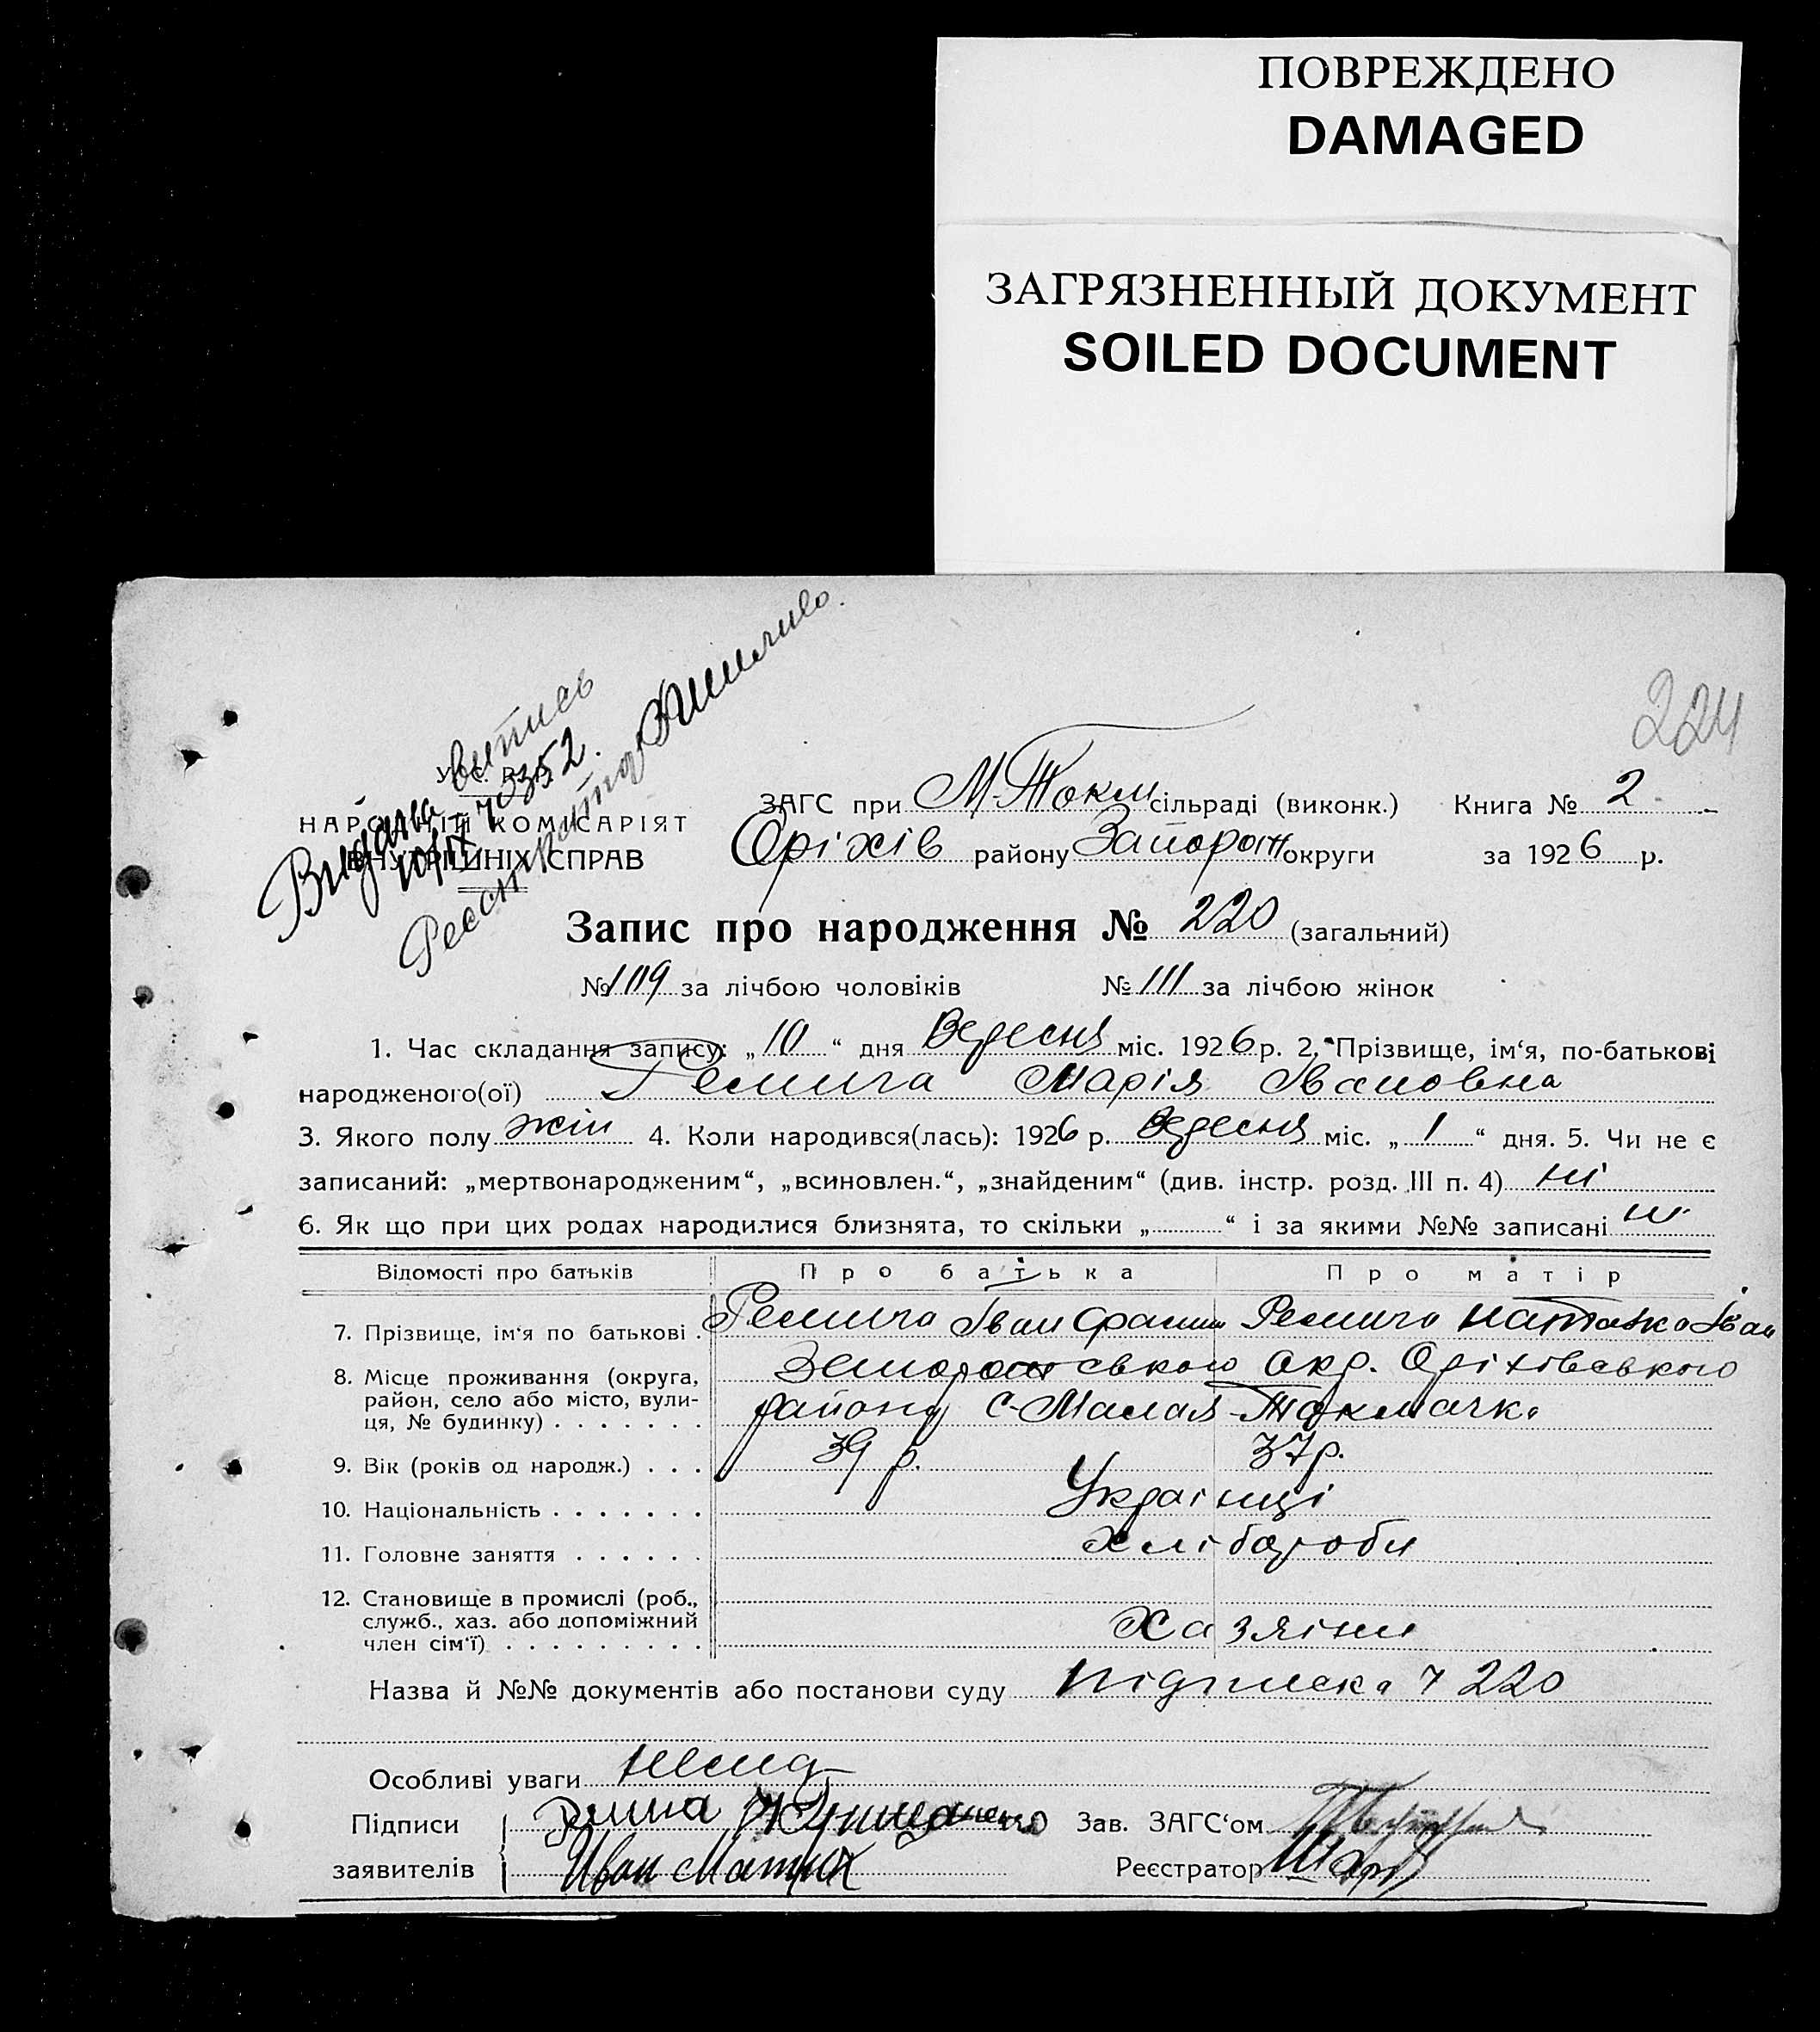 ПОВРЕЖДЕНО
DAMAGED
ЗАГРЯЗНЕННЫЙ ДОКУМЕНТ
SOILED DOCUMENT
224
Видана витись
70352.
У.С.Р.Р.
НАРОДНІЙ КОМІСАРІЯТ
ВНУТРІШНІХ СПРАВ
ЗАГС при М-Токм сільраді (виконк.) Книга № 2
Оріхів району Запорож округи за 1926 р.
Запис про народження № 220 (загальний)
№ 109 за лічбою чоловіків № 111 за лічбою жінок
1. Час складання запису: „10“ дня Вересня міс. 1926 р. 2. Прізвище, ім‘я, по-батькові
народженого(ої) Ремига Марія Івановна
3. Якого полу жін 4. Коли народився(лась): 1926 р. Вересня міс. „1“ дня. 5. Чи не є
записаний: „мертвонародженим“, „всиновлен.“, „знайденим“ (див. інстр. розд. III п. 4) ні
6. Як що при цих родах народилися близнята, то скільки „ “ і за якими №№ записані ні
Відомості про батьків Про батька Про матір
7. Прізвище, ім‘я по батькові . Ремига Іван Ремига Іван
8. Місце проживання (округа, район, село або місто, вулиця, № будинку) . . . . . . . Запорожського окр. Оріхівського
району с-Малая-Токмачка
9. Вік (років од народж.) . . . 39 р. 37 р.
10. Національність . . . . . . . Українці
11. Головне заняття . . . . . . Хлібороби
12. Становище в промислі (роб., служб., хаз. або допоміжний член сім‘ї) . . . . . . . . . Хазяіни
Назва й №№ документів або постанови суду підписка 220
Особливі уваги
Підписи Зав. ЗАГС‘ом
заявителів Иван Реєстратор